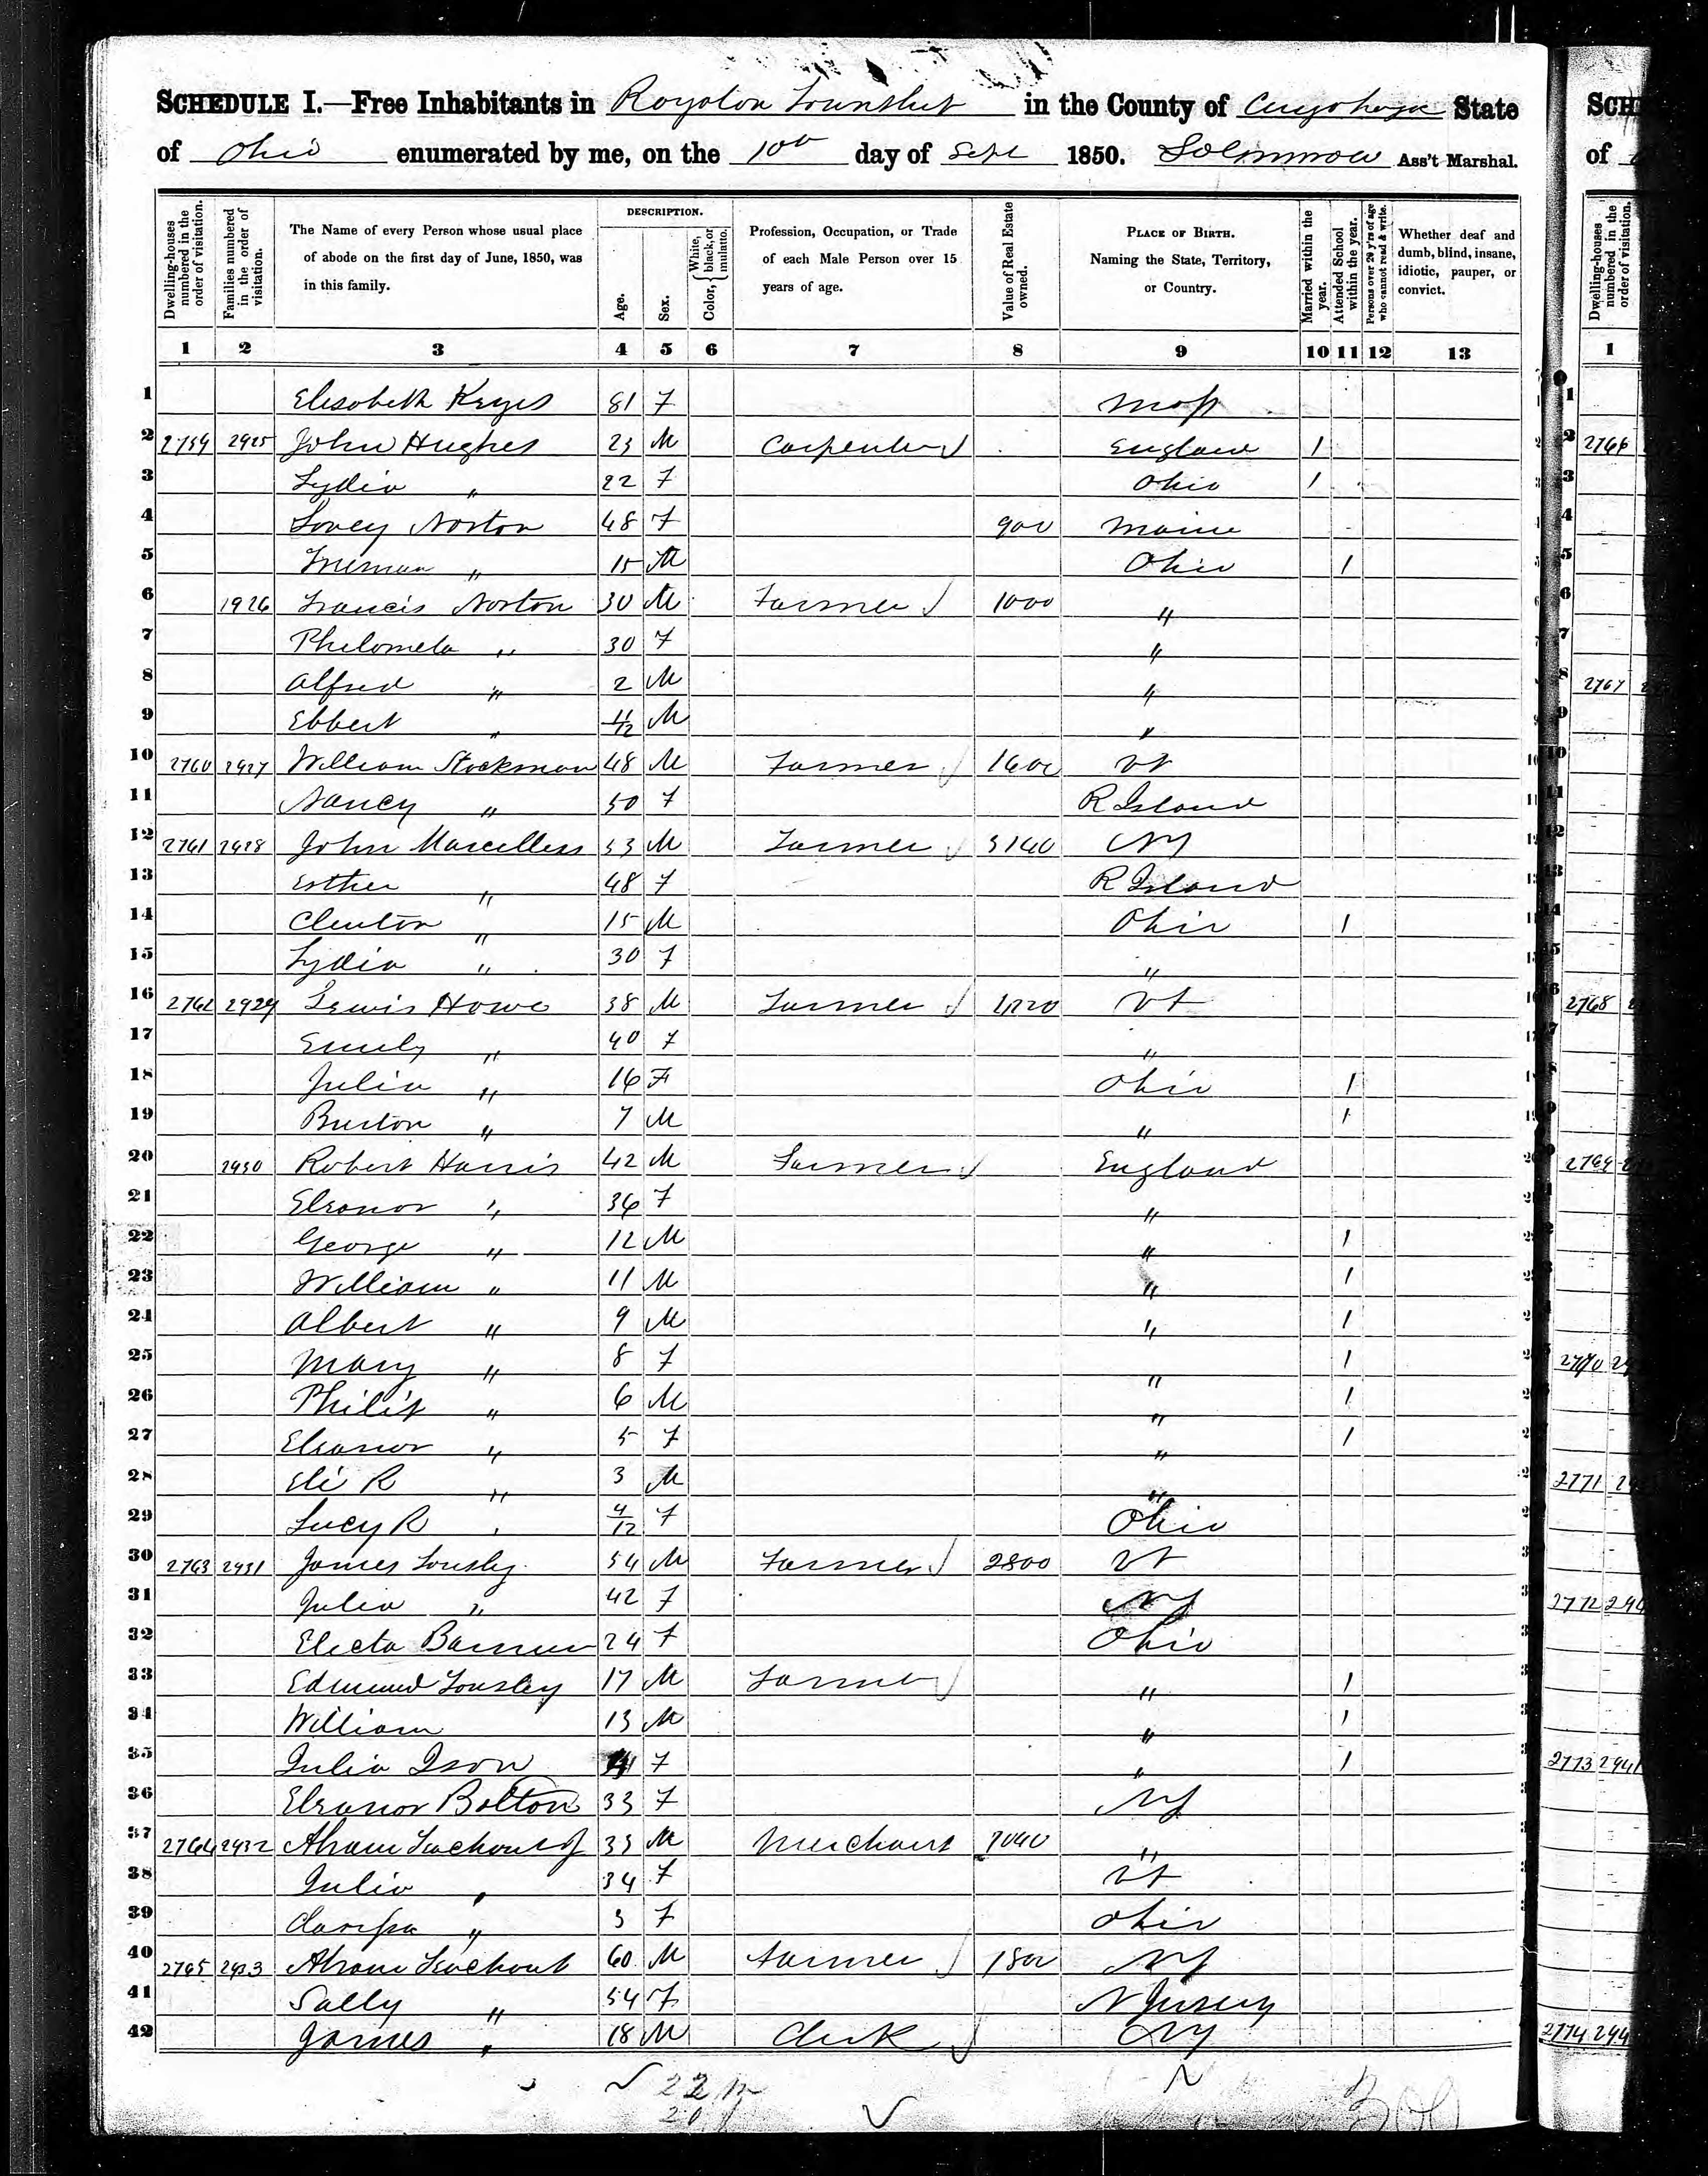 SCHEDULE I.—Free Inhabitants in Royalton Township in the County of Cuyahoga State
of Ohio enumerated by me, on the 10th day of Sept 1850. Ass't Marshal.
Dwelling-houses numbered in the order of visitation. Families numbered in the order of visitation. The Name of every Person whose usual place of abode on the first day of June, 1850, was in this family. DESCRIPTION. Age. Sex. Color, { White, black, or mulatto. Profession, Occupation, or Trade of each Male Person over 15 years of age. Value of Real Estate owned. PLACE OF BIRTH. Naming the State, Territory, or Country. Married within the year. Attended School within the year. Persons over 20 y'rs of age who cannot read & write. Whether deaf and dumb, blind, insane, idiotic, pauper, or convict.
1 2 3 4 5 6 7 8 9 10 11 12 13
1 Elisabeth Keyes 81 F Mass
2 2759 2925 John Hughes 23 M Carpenter England 1
3 Lydia " 22 F Ohio 1
4 Lovey Norton 48 F 900 Maine
5 Truman " 15 M Ohio 1
6 1926 Francis Norton 30 M Farmer 1000 "
7 Philomela " 30 F "
8 Alfred " 2 M "
9 Ebbert " 11/12 M "
10 2760 2927 William Stockman 48 M Farmer 1600 Vt
11 Nancy " 50 F R Island
12 2761 2928 John Marcelless 53 M Farmer NY
13 Esther " 48 F R Island
14 Clinton " 15 M Ohio 1
15 Lydia " 30 F "
16 2762 2929 Lewis Howe 38 M Farmer Vt
17 Emily " 40 F "
18 Julia " 16 F Ohio 1
19 Burton " 7 M " 1
20 2930 Robert Harris 42 M Farmer England
21 Eleanor " 36 F "
22 George " 12 M " 1
23 William " 11 M " 1
24 Albert " 9 M " 1
25 Mary " 8 F " 1
26 Philip " 6 M " 1
27 Eleanor " 5 F " 1
28 Eli R " 3 M "
29 Lucy R " 4/12 F Ohio
30 2763 2931 James Tousley 54 M Farmer 2800 Vt
31 Julia " 42 F NY
32 Electa 24 F Ohio
33 Edmund Tousley 17 M Farmer " 1
34 William 13 M " 1
35 Julia F " 1
36 Eleanor Bolton 33 F NY
37 2764 2932 Abram 33 M Merchant "
38 Julia " 34 F Vt
39 Clarissa " 3 F Ohio
40 2765 2933 Abram 60 M Farmer 1800 NY
41 Sally " 54 F N Jersey
42 James " 18 M Clerk NY
22 m
20 f
SCH
of
Dwelling-houses numbered in the order of visitation.
1
2766
2767
2768
2769
2770
2771
2772
2773 2941
2774